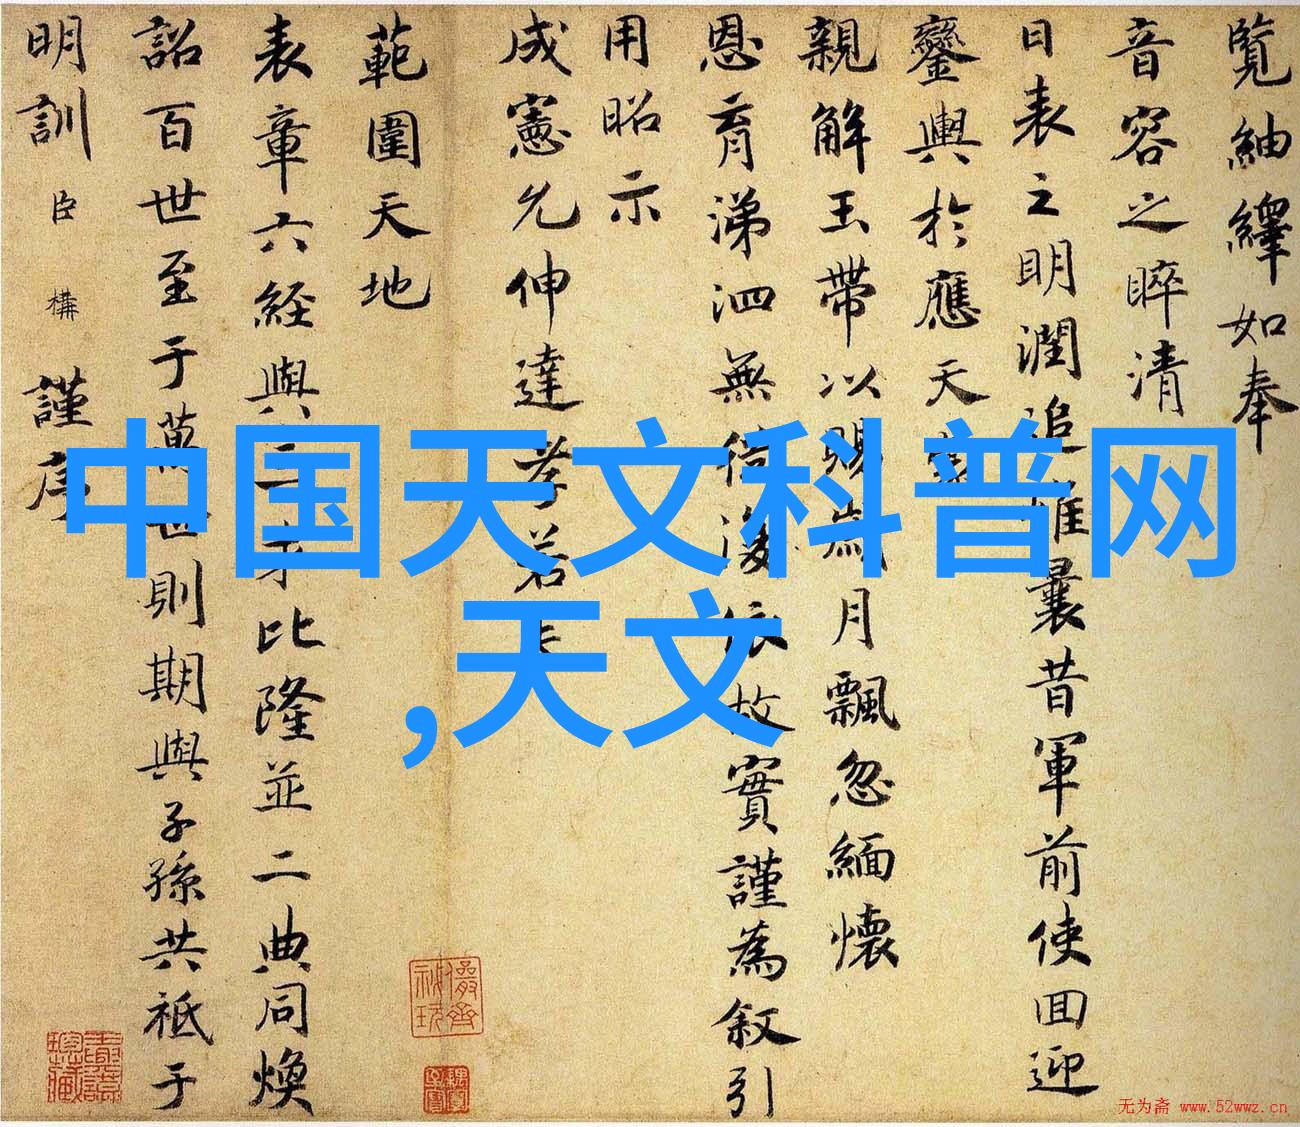 覧紬繹如奉
音容之睟清
日表之明潤追惟曩昔軍前使囬迎
鑾輿於應天
親解玉帶以賜歲月飄忽緬懷
恩育涕泗無依故實謹為叙引
用昭示
成憲允伸達孝若
範圍天地
表章六経與三才比隆並二典同煥
詔百世至于萬世則期與子孫共祗于
明訓臣構謹序
中国天文科普网
,天文
无为斋 www.52wwz.cn